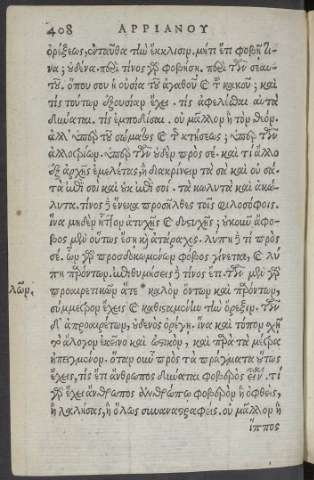 408 ΑΡΡΙΑΝΟΥ
ὀρέξεως, ἐνταῦθα τὴν ἔκκλισιν. μήτι ἔτι φοβῇ τι-
να; οὐδένα. περὶ τίνος γὰρ φοβήσῃ. περὶ τῶν σεαυ-
τοῦ. ὅπου σου ἡ οὐσία τοῦ ἀγαθοῦ καὶ τοῦ κακοῦ; καὶ
τίς τούτων ἐξουσίαν ἔχει. τίς ἀφελέσθαι αὐτὰ
δύναται. τίς ἐμποδίσαι. οὐ μᾶλλον ἢ τὸν θεόν.
ἀλλ' ὑπὲρ τοῦ σώματος καὶ τῆς κτήσεως; ὑπὲρ τῶν
ἀλλοτρίων. ὑπὲρ τῶν οὐδὲν πρὸς σέ. καὶ τί ἄλλο
ἐξ ἀρχῆς ἐμελέτας, ἢ διακρίνειν τὰ σὰ καὶ οὐ σά.
τὰ ἐπὶ σοὶ καὶ οὐκ ἐπὶ σοί. τὰ κωλυτὰ καὶ ἀκώ-
λυτα. τίνος δὲ ἕνεκα προσῆλθες τοῖς φιλοσόφοις.
ἵνα μηδὲν ἧττον ἀτυχῇς καὶ δυστυχῇς; οὐκοῦν ἄφο-
βος μὲν οὕτως ἔσῃ καὶ ἀτάραχος. λύπη δὲ τί πρὸς
σέ. ὧν γὰρ προσδοκωμένων φόβος γίνεται, καὶ λύ-
πη παρόντων. ἐπιθυμήσεις δὲ τίνος ἔτι. τῶν μὲν γὰρ
λῶν, προαιρετικῶν ἅτε * καλὸν ὄντων καὶ παρόντων,
σύμμετρον ἔχεις καὶ καθισταμένην τὴν ὄρεξιν. τῶν
δ' ἀπροαιρέτων, οὐδενὸς ὀρέγῃ. ἵνα καὶ τόπον σχῇ
τὸ ἄλογον ἐκεῖνο καὶ ὠστικόν, καὶ παρὰ τὰ μέτρα
ἠπειγμένον. ὅταν οὖν πρὸς τὰ πράγματα οὕτως
ἔχεις, τίς ἔτι ἄνθρωπος δύναται φοβερὸς εἶναι. τί
γὰρ ἔχει ἄνθρωπος ἀνθρώπῳ φοβερὸν ἢ ὀφθείς,
ἢ λαλήσας, ἢ ὅλως συναναστραφείς. οὐ μᾶλλον ἢ
ἵππος